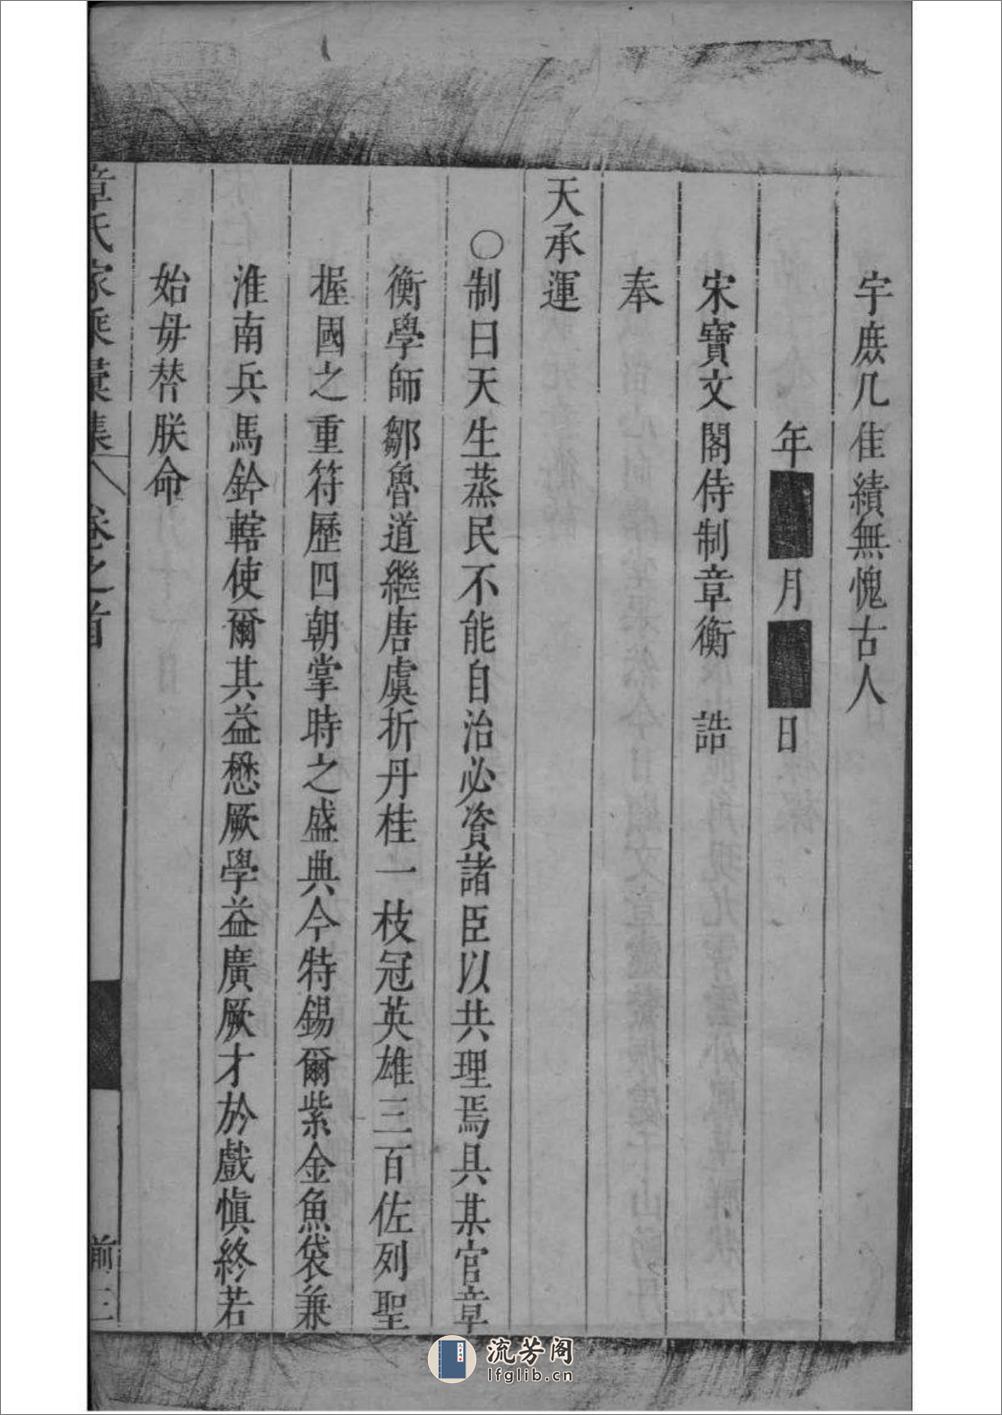 宇庶几佳績無愧古人
年■月■日
宋寶文閣侍制章衡 誥
奉
天承運
○制曰天生蒸民不能自治必資諸臣以共理焉具某官章
衡學師鄒魯道繼唐虞折丹桂一枝冠英雄三百佐列聖
握國之重符歷四朝掌時之盛典今特錫爾紫金魚袋兼
淮南兵馬鈐轄使爾其益懋厥學益廣厥才於戲慎終若
始毋替朕命
章氏家乘彙集 卷之首 前三
流芳阁
lfglib.cn